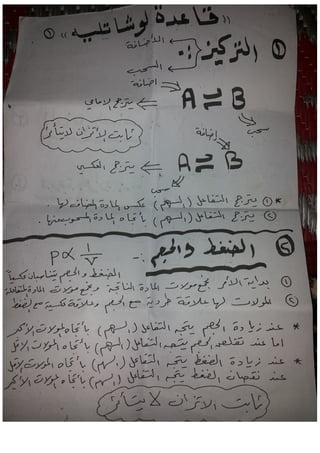 « قاعدة لوشاتليه » ①
① التركيز :- الاضافة
السحب
اضافة
A ⇌ B يترجح الامامي
سحب
ثابت الاتزان لا يتأثر
اضافة
A ⇌ B يترجح العكسي
سحب
* ① يترجح التفاعل (السهم) عكس المادة المضاف لها.
② يترجح التفاعل (السهم) بأتجاه المادة المسحوب منها.
② الضغط والحجم :- P ∝ 1/V
الضغط و الحجم يتناسبان عكسياً
① بداية الأمر نجمع مولات المادة الناتجة ونجمع مولات المادة المتفاعلة
② المولات لها علاقة طردية مع الحجم وعلاقة عكسية مع الضغط
* عند زيادة الحجم يتجه التفاعل (السهم) بأتجاه المولات الأكبر
اما عند تقليص الحجم يتجه التفاعل (السهم) بأتجاه المولات الأقل
* عند زيادة الضغط يتجه التفاعل (السهم) بأتجاه المولات الأقل
عند نقصان الضغط يتجه التفاعل (السهم) بأتجاه المولات الأكبر
ثابت الاتزان لا يتأثر